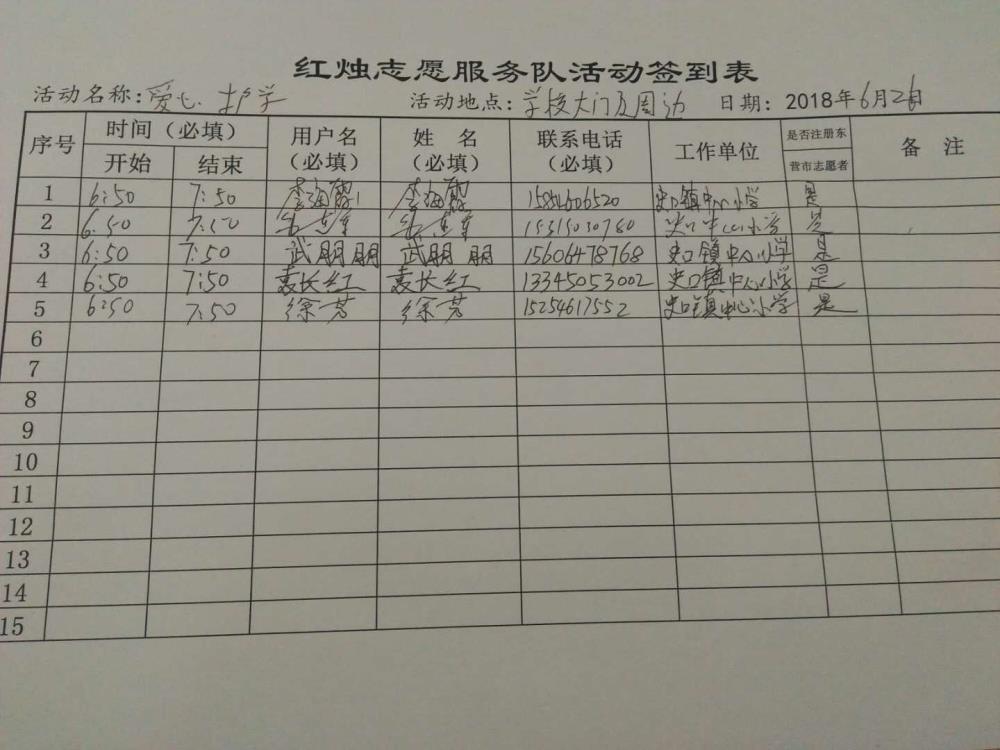 红烛志愿服务队活动签到表
活动名称：爱心护学 活动地点：学校大门及周边 日期：2018年6月2日
序号 时间（必填） 用户名（必填） 姓名（必填） 联系电话（必填） 工作单位 是否注册东营市志愿者 备注
开始 结束
1 6:50 7:50 李海霞 李海霞 史口镇中心小学 是
2 6:50 7:50 15315030780 史口中心小学 是
3 6:50 7:50 武朋朋 武朋朋 15606478768 史口镇中心小学 是
4 6:50 7:50 袁长红 袁长红 13345053002 史口镇中心小学 是
5 6:50 7:50 徐芳 徐芳 15254617552 史口镇中心小学 是
6
7
8
9
10
11
12
13
14
15